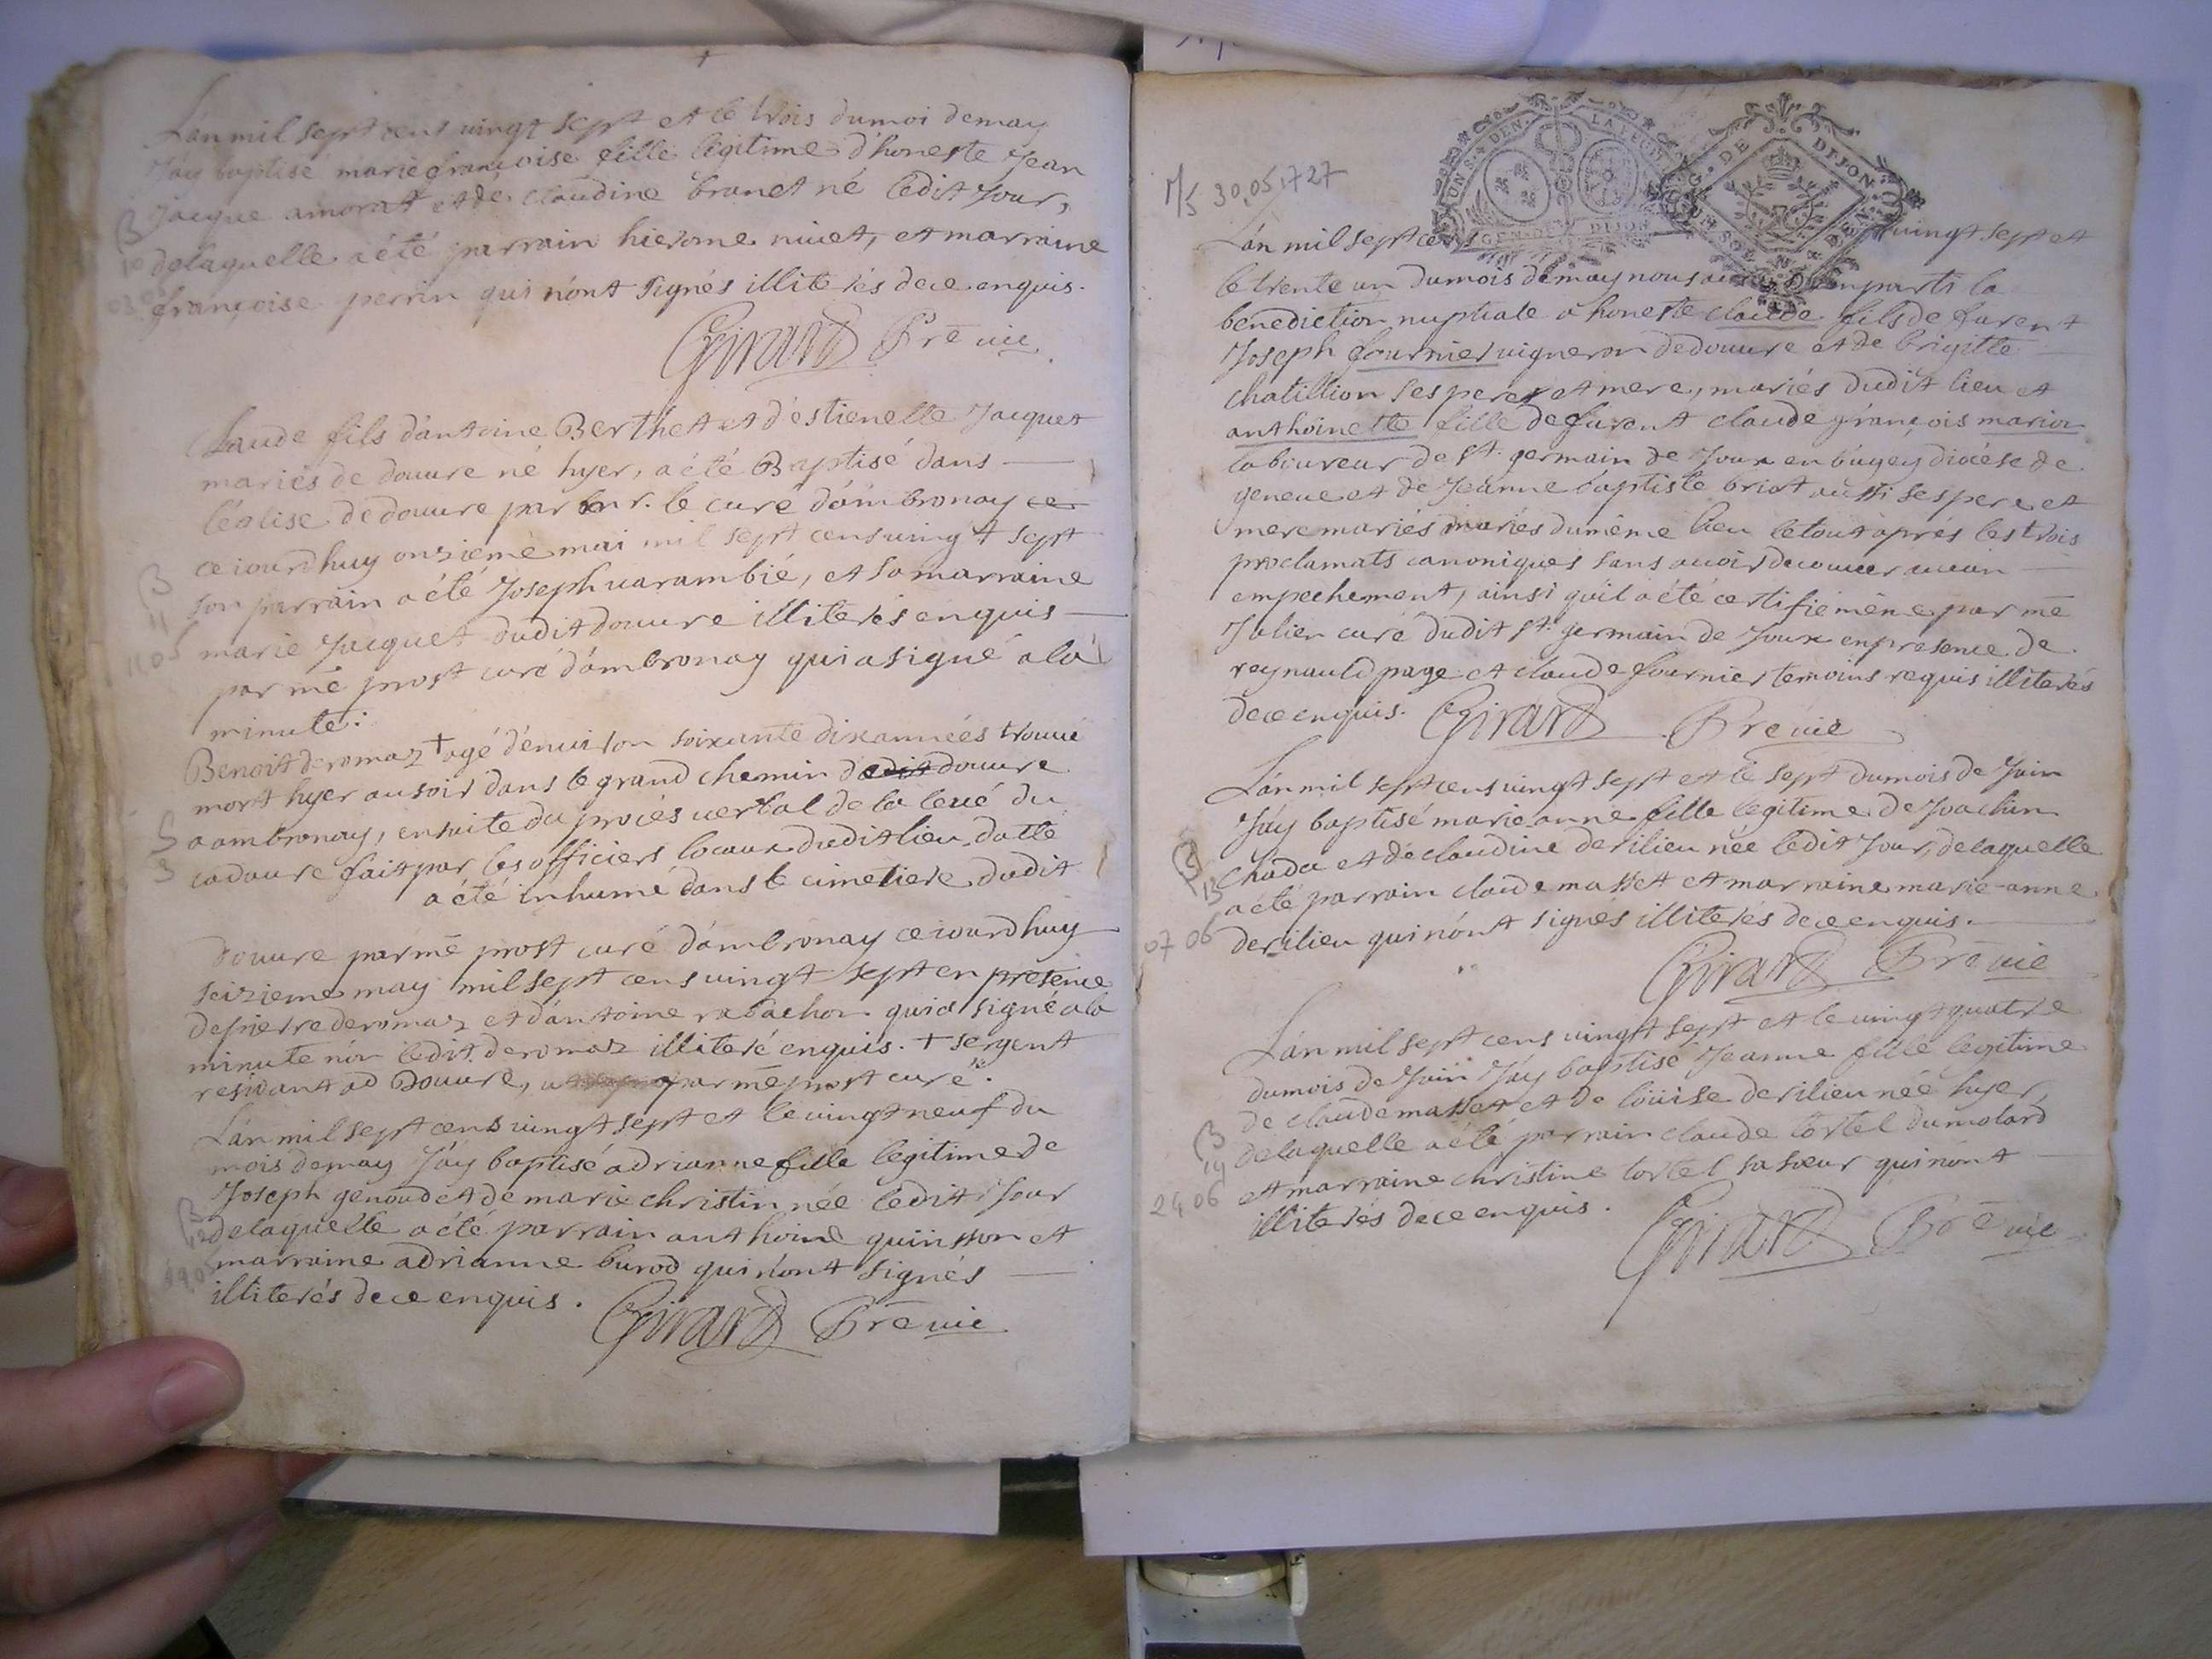 Lán mil sept cens vingt sept et le trois du moi de may
Jáy baptisé marie françoise fille legitime d'honeste Jean
Jacque amorat et de claudine branet né ledit Jour,
de laquelle a été parrain hierome nivet, et marraine
françoise perrin qui n'ont signés illiterés de ce enquis.
B
10
03 05
Girard Prē vic
Claude fils d'antoine Berthet et d'estienette Jacquet
mariés de douvre né hyer, a été Baptisé dans
l'église de douvre par mr. le curé d'ambronay ce
ce iourdhuy onzieme mai mil sept cens vingt sept
son parrain a été Joseph varambié, et sa marraine
marie Jacquet dudit douvre illiterés enquis
par mē prost curé d'ambronay qui a signé a la
minute:
B
11
11 05
Benoit deromaz + agé d'environ soixante dix années trouvé
mort hyer au soir dans le grand chemin dedit douvre
a ambronay, ensuite du procés verbal de la levé du
cadavre fait par les officiers locaux dudit lieu, datté
a été inhumé dans le cimetiere dudit
S
3
douvre par mē prost curé d'ambronay ce iourdhuy
seizieme may mil sept cens vingt sept en presence
de pierre deromaz et d'antoine rabachon qui a signé a la
minute non ledit deromaz illiteré enquis. + sergent
residant ad Douvre, par mē prost curé.
Lán mil sept cens vingt sept et le vingt neuf du
mois de may Jáy baptisé adrianne fille legitime de
Joseph genoud et de marie christin née ledit Jour
de laquelle a été parrain anthoine quinsson et
marraine adrianne burod qui n'ont signés
illiterés de ce enquis.
B
12
29 05
Girard Prē vic
M/5 30.05.1727
UNS. & DEN. LATEUIL
GEN. DE DIJON
G. DE DIJON
Lán mil sept cens vingt sept et
le trente un du mois de may nous avons imparti la
benediction nuptiale a honeste claude fils de furent
Joseph fournier vigneron de douvre et de brigitte
chatillion ses peres et mere, mariés dudit lieu et
anthoinette fille de furent claude françois marion
laboureur de st. germain de Joux en bugey diocése de
geneve et de Jeanne baptiste briat aussi ses pere et
mere mariés mariés du même lieu le tout aprés les trois
proclamats canoniques sans avoir decouver aucun
empechement, ainsi qu'il a été certifié même par mē
Julien curé dudit st. germain de Joux en presence de
reynauld page et claude fournier temoins requis illiterés
de ce enquis. Girard Prē vic
Lán mil sept cens vingt sept et le sept du mois de Juin
Jáy baptisé marie anne fille legitime de Joachin
chadu et de claudine derilieu née ledit Jour, de laquelle
a été parrain claude masset et marraine marie-anne
derilieu qui n'ont signés illiterés de ce enquis.
B
13
07 06
Girard Prē vic
Lán mil sept cens vingt sept et le vingt quatre
du mois de Juin Jáy baptisé Jeanne fille legitime
de claude masset et de loüise derilieu née hyer,
de laquelle a été parrain claude tortel du molard
et marraine christine tortel sa soeur qui n'ont
illiterés de ce enquis.
B
14
24 06
Girard Prē vic